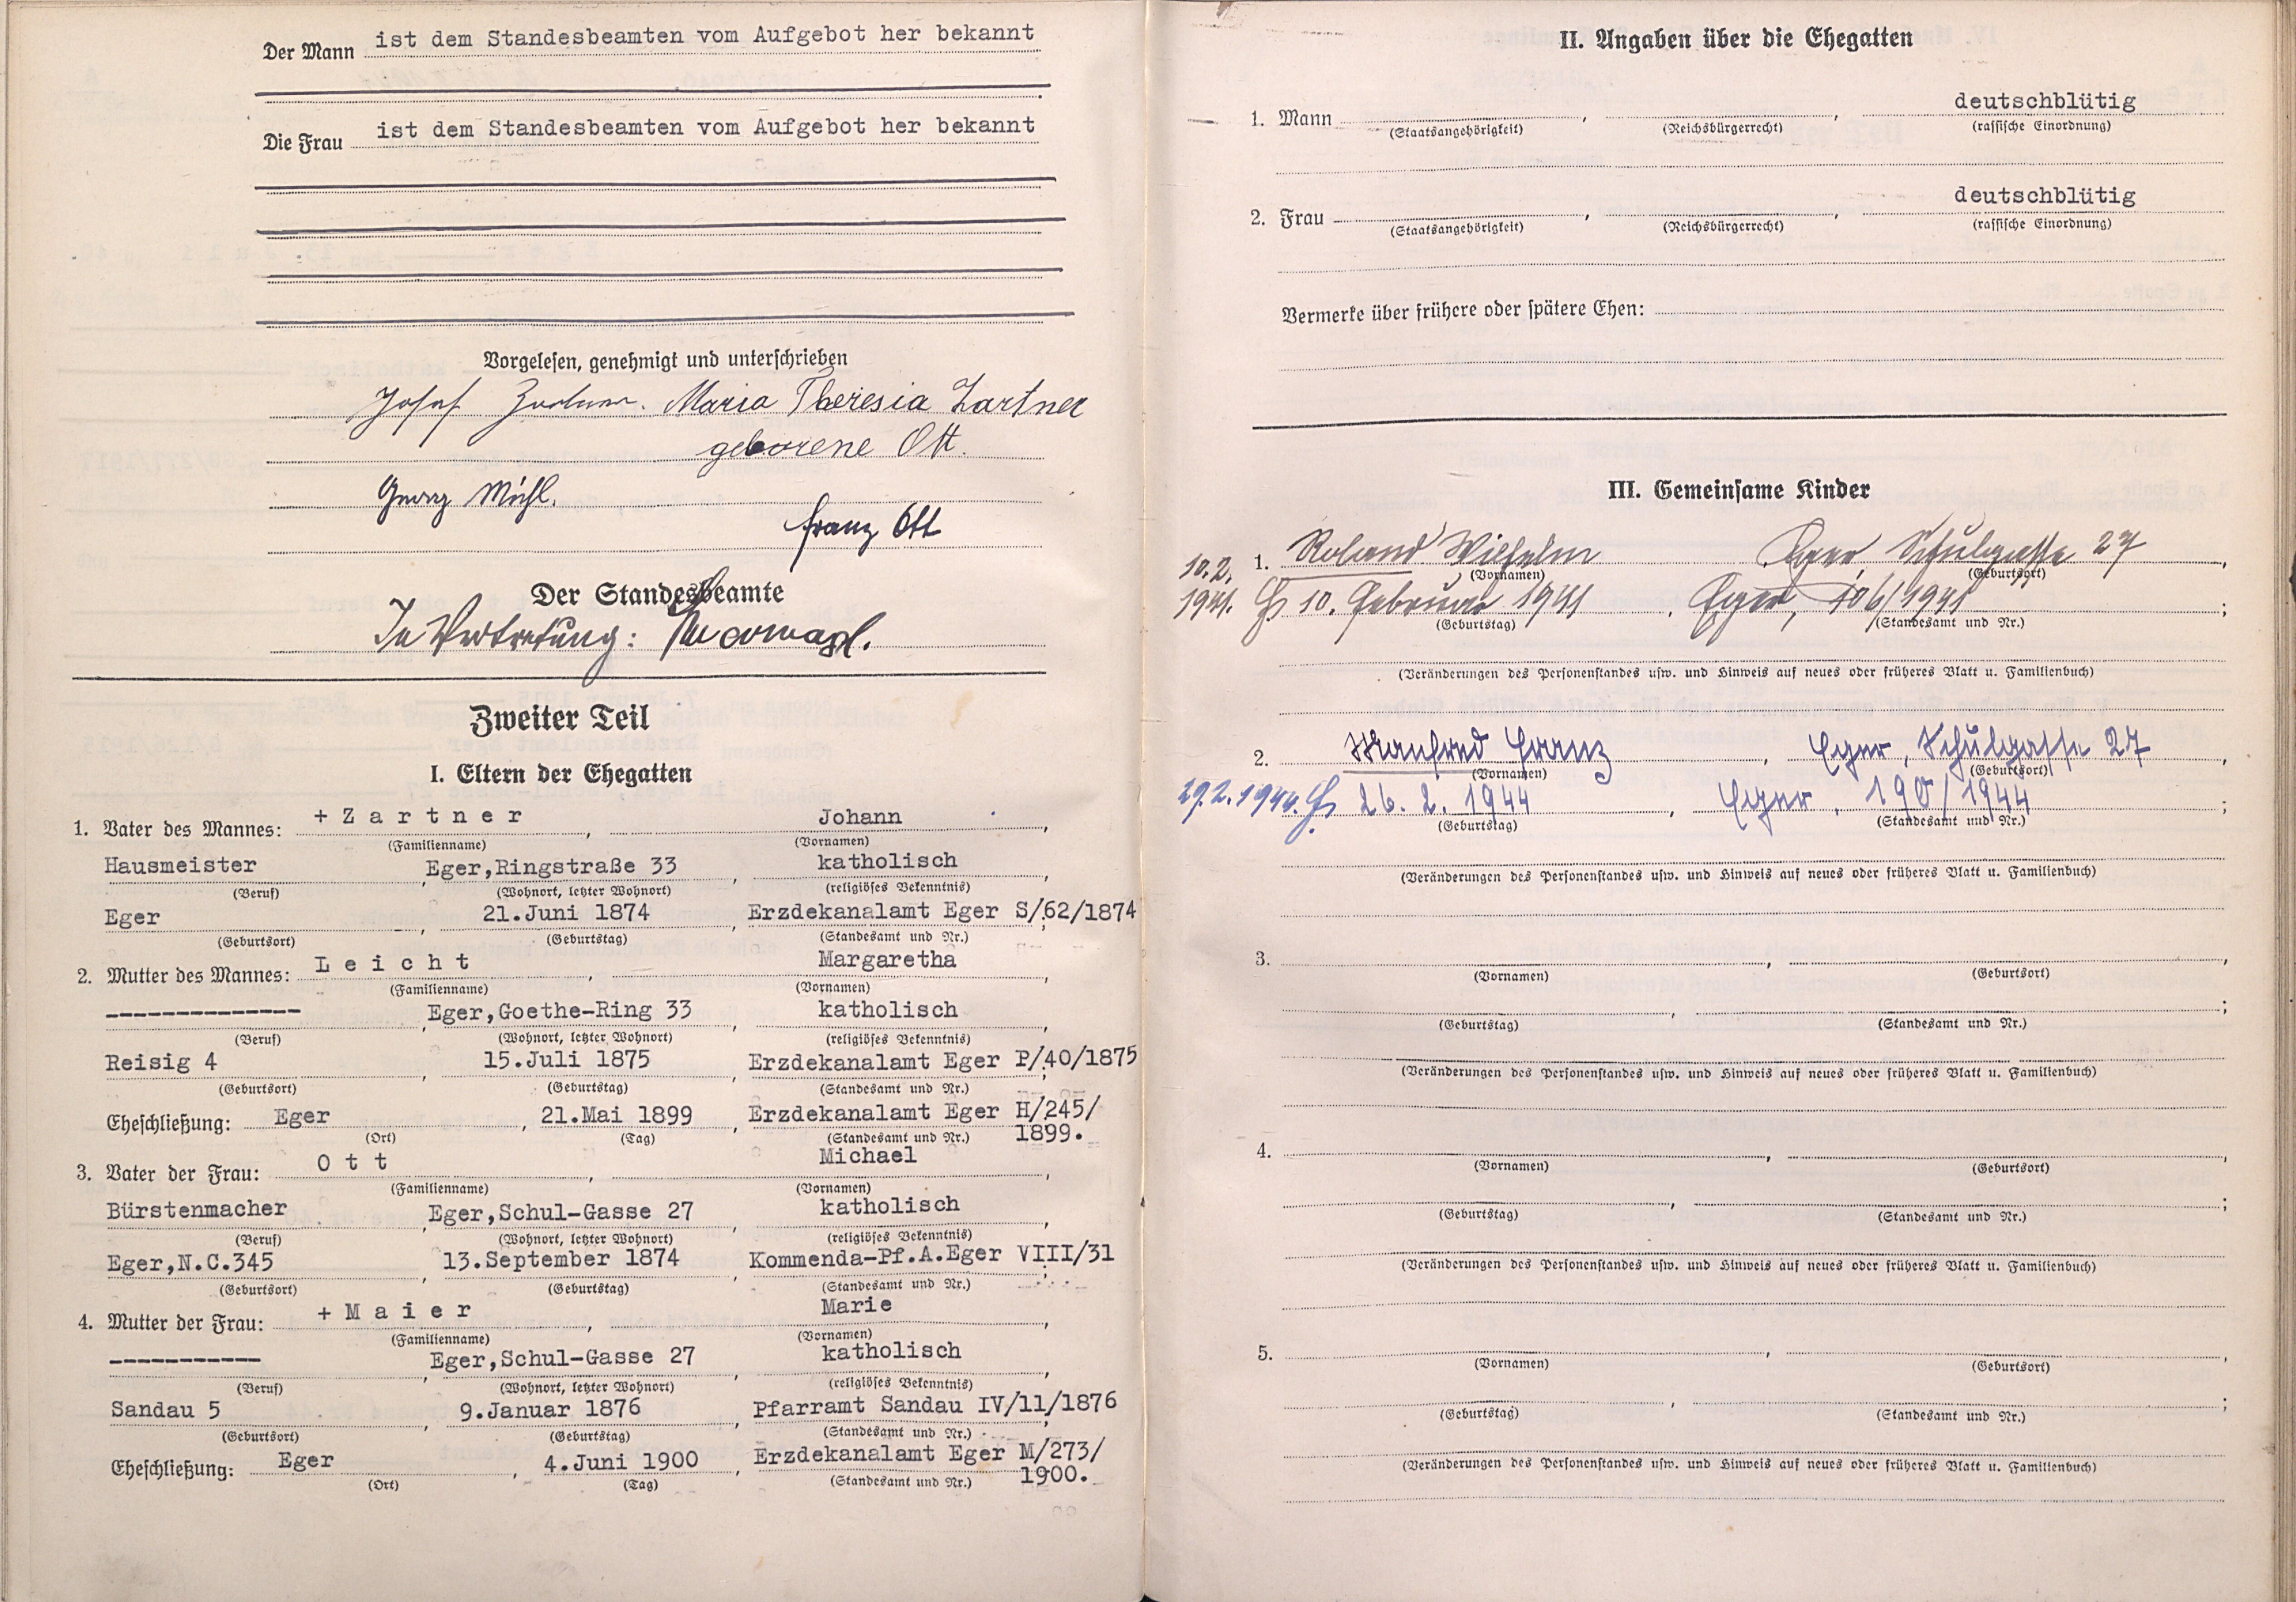 Der Mann ist dem Standesbeamten vom Aufgebot her bekannt
Die Frau ist dem Standesbeamten vom Aufgebot her bekannt
Vorgelesen, genehmigt und unterschrieben
Josef Zartner. Maria Theresia Zartner
geborene Ott.
Georg
Franz Ott
Der Standesbeamte
In Vertretung:
Zweiter Teil
I. Eltern der Ehegatten
1. Vater des Mannes: + Zartner, Johann,
(Familienname) (Vornamen)
Hausmeister, Eger,Ringstraße 33, katholisch,
(Beruf) (Wohnort, letzter Wohnort) (religiöses Bekenntnis)
Eger, 21.Juni 1874, Erzdekanalamt Eger S/62/1874;
(Geburtsort) (Geburtstag) (Standesamt und Nr.)
2. Mutter des Mannes: Leicht, Margaretha,
(Familienname) (Vornamen)
--------------, Eger,Goethe-Ring 33, katholisch,
(Beruf) (Wohnort, letzter Wohnort) (religiöses Bekenntnis)
Reisig 4, 15.Juli 1875, Erzdekanalamt Eger P/40/1875;
(Geburtsort) (Geburtstag) (Standesamt und Nr.)
Eheschließung: Eger, 21.Mai 1899, Erzdekanalamt Eger H/245/
(Ort) (Tag) (Standesamt und Nr.) 1899.
3. Vater der Frau: Ott, Michael,
(Familienname) (Vornamen)
Bürstenmacher, Eger,Schul-Gasse 27, katholisch,
(Beruf) (Wohnort, letzter Wohnort) (religiöses Bekenntnis)
Eger,N.C.345, 13.September 1874, Kommenda-Pf.A.Eger VIII/31;
(Geburtsort) (Geburtstag) (Standesamt und Nr.)
4. Mutter der Frau: + Maier, Marie,
(Familienname) (Vornamen)
-----------, Eger,Schul-Gasse 27, katholisch,
(Beruf) (Wohnort, letzter Wohnort) (religiöses Bekenntnis)
Sandau 5, 9.Januar 1876, Pfarramt Sandau IV/11/1876;
(Geburtsort) (Geburtstag) (Standesamt und Nr.)
Eheschließung: Eger, 4.Juni 1900, Erzdekanalamt Eger M/273/
(Ort) (Tag) (Standesamt und Nr.) 1900.
II. Angaben über die Ehegatten
1. Mann , , deutschblütig
(Staatsangehörigkeit) (Reichsbürgerrecht) (rassische Einordnung)
2. Frau , , deutschblütig
(Staatsangehörigkeit) (Reichsbürgerrecht) (rassische Einordnung)
Vermerke über frühere oder spätere Ehen:
III. Gemeinsame Kinder
10.2. 1. Roland Wilhelm Eger, Schulgasse 27,
(Vornamen) (Geburtsort)
1941. 10. Februar 1941, Eger, 106/1941;
(Geburtstag) (Standesamt und Nr.)
(Veränderungen des Personenstandes usw. und Hinweis auf neues oder früheres Blatt u. Familienbuch)
2. Manfred Franz, Eger, Schulgasse 27,
(Vornamen) (Geburtsort)
29.2.1944. 26. 2. 1944, Eger, 190/1944;
(Geburtstag) (Standesamt und Nr.)
(Veränderungen des Personenstandes usw. und Hinweis auf neues oder früheres Blatt u. Familienbuch)
3. , ,
(Vornamen) (Geburtsort)
, ;
(Geburtstag) (Standesamt und Nr.)
(Veränderungen des Personenstandes usw. und Hinweis auf neues oder früheres Blatt u. Familienbuch)
4. , ,
(Vornamen) (Geburtsort)
, ;
(Geburtstag) (Standesamt und Nr.)
(Veränderungen des Personenstandes usw. und Hinweis auf neues oder früheres Blatt u. Familienbuch)
5. , ,
(Vornamen) (Geburtsort)
, ;
(Geburtstag) (Standesamt und Nr.)
(Veränderungen des Personenstandes usw. und Hinweis auf neues oder früheres Blatt u. Familienbuch)